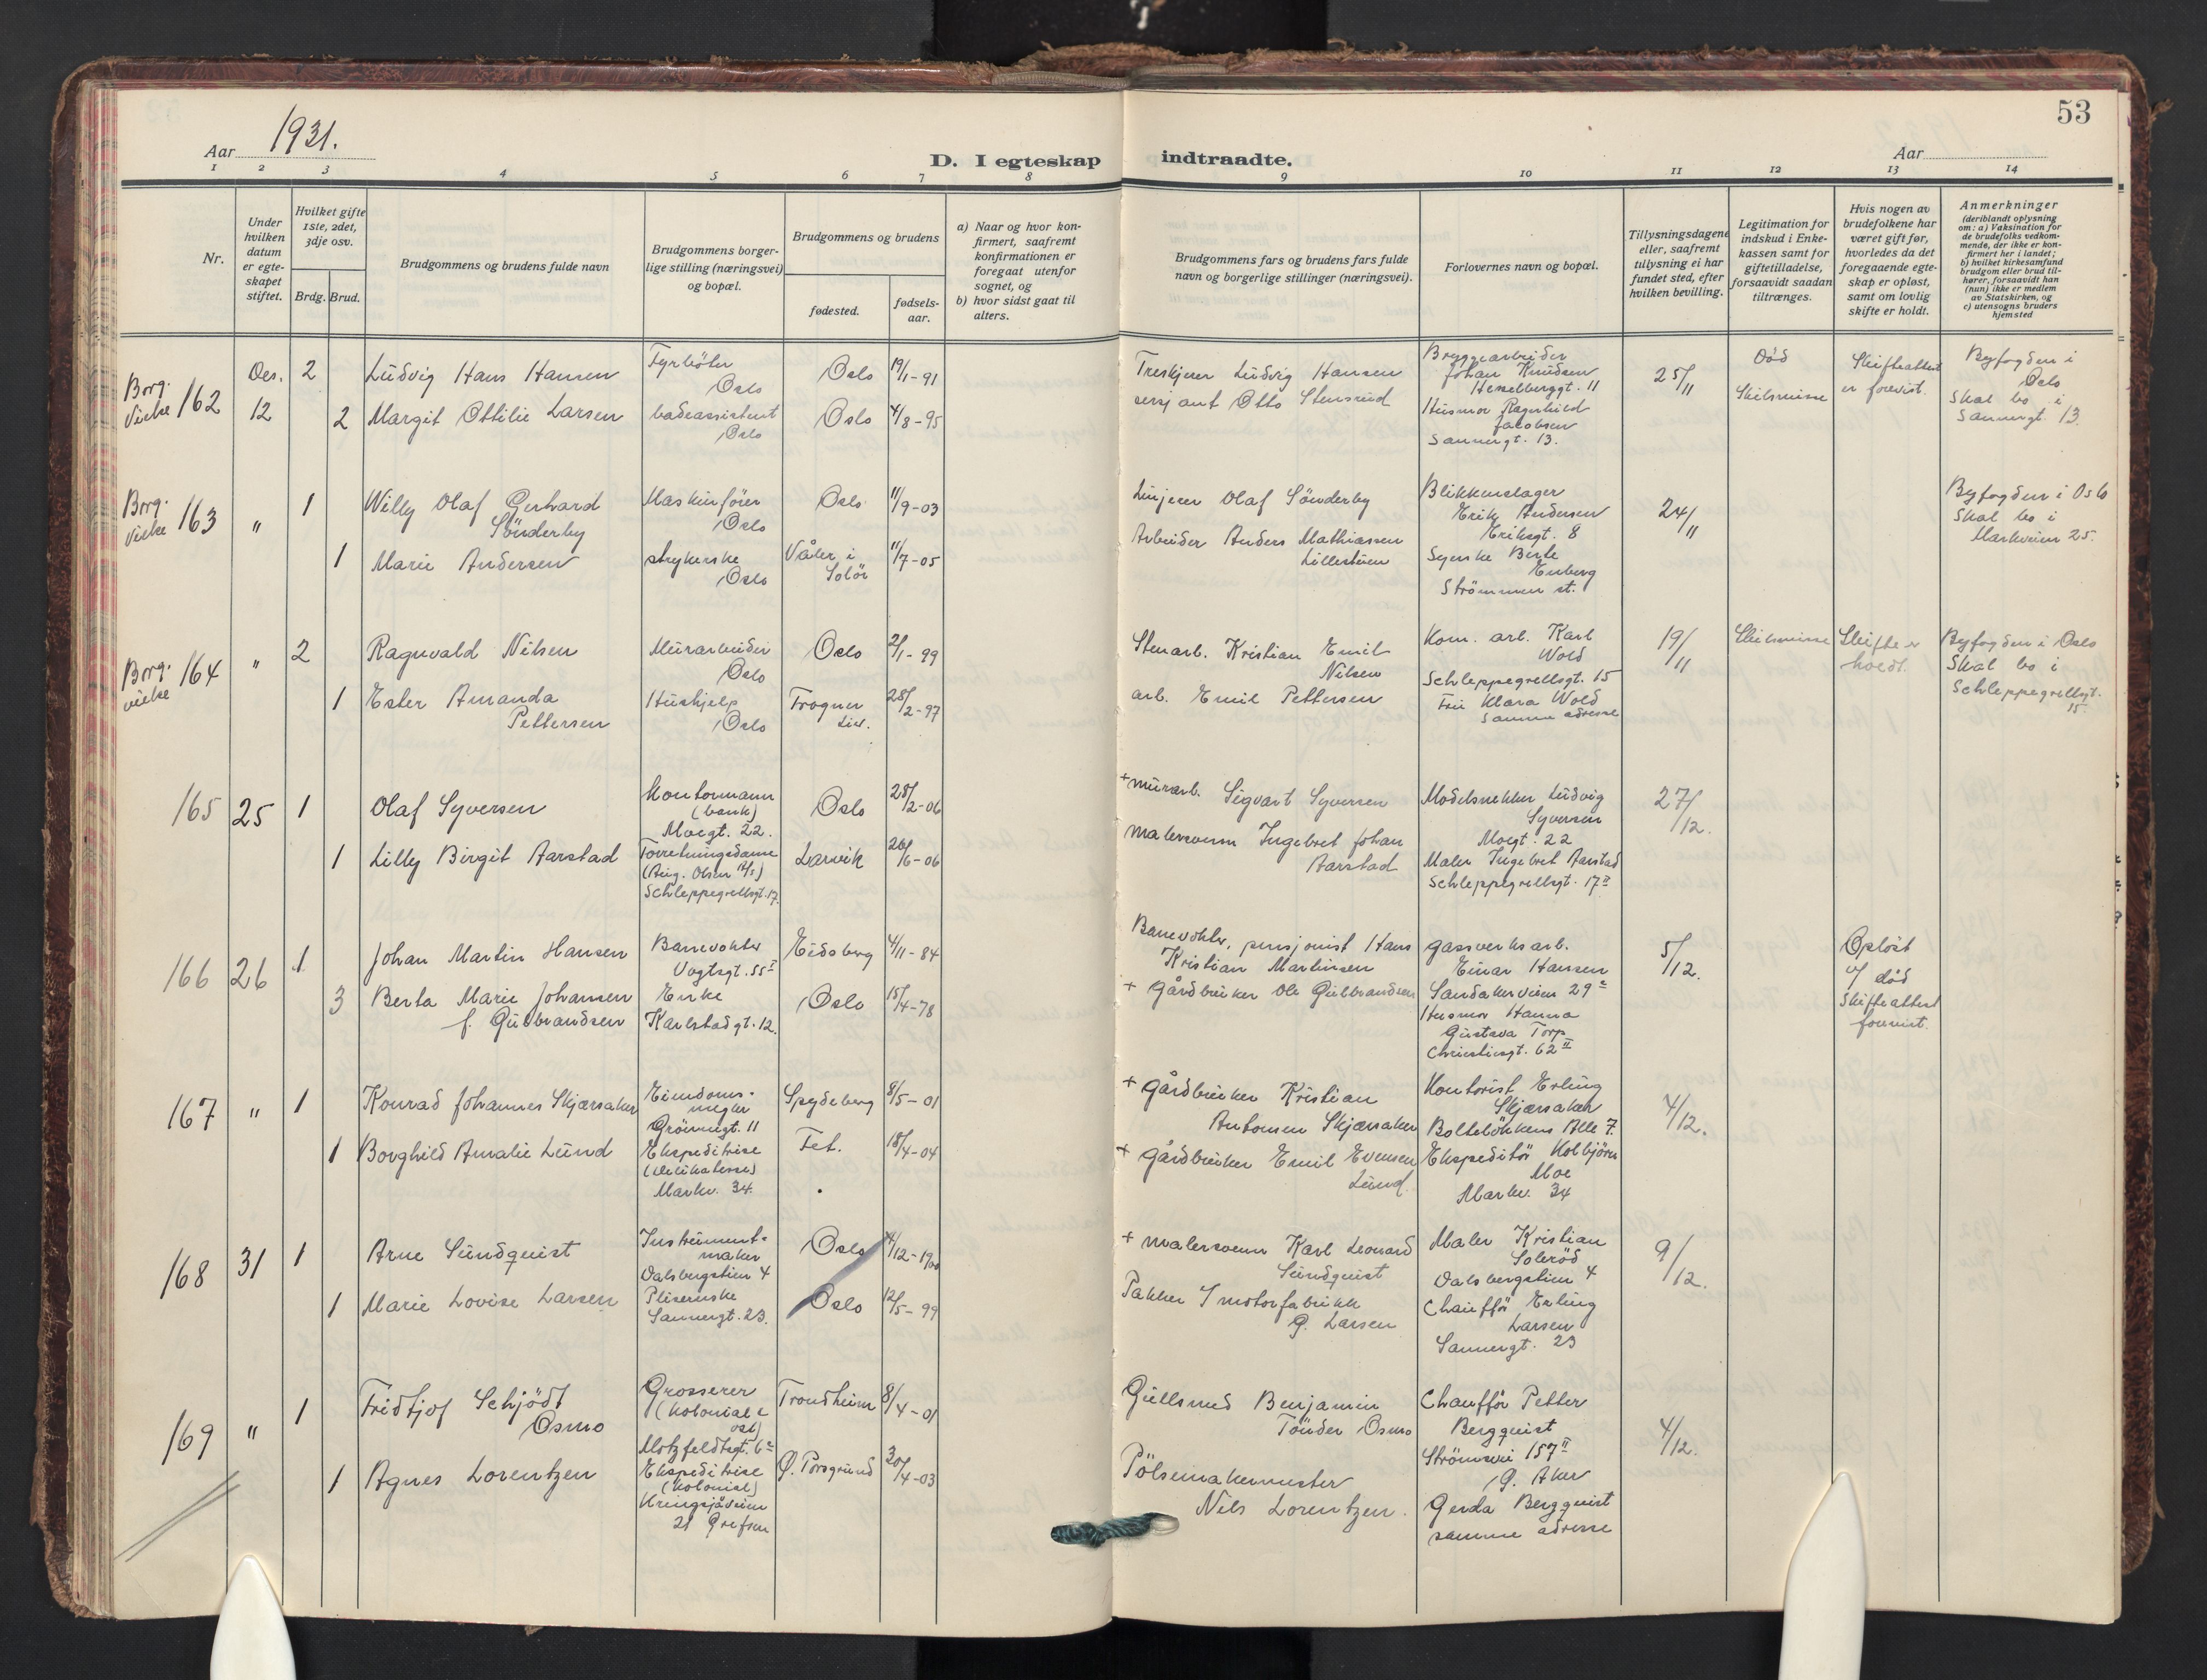 53
Aar 1931.
D. I egteskap indtraadte.
Aar
1 2 3 4 5 6 7 8 9 10 11 12 13 14
Nr.
Under hvilken datum er egteskapet stiftet.
Hvilket gifte 1ste, 2det, 3dje osv.
Brdg. Brud.
Brudgommens og brudens fulde navn
Brudgommens borgerlige stilling (næringsvei) og bopæl.
Brudgommens og brudens
fødested.
fødselsaar.
a) Naar og hvor konfirmert, saafremt konfirmationen er foregaat utenfor sognet, og
b) hvor sidst gaat til alters.
Brudgommens fars og brudens fars fulde navn og borgerlige stillinger (næringsvei).
Forlovernes navn og bopæl.
Tillysningsdagene eller, saafremt tillysning ei har fundet sted, efter hvilken bevilling.
Legitimation for indskud i Enkekassen samt for giftetilladelse, forsaavidt saadan tiltrænges.
Hvis nogen av brudefolkene har været gift før, hvorledes da det foregaaende egteskap er opløst, samt om lovlig skifte er holdt.
Anmerkninger (deriblandt oplysning om: a) Vaksination for de brudefolks vedkommende, der ikke er konfirmert her i landet; b) hvilket kirkesamfund brudgom eller brud tilhører, forsaavidt han (hun) ikke er medlem av Statskirken, og c) utensogns bruders hjemsted
Borg. vielse 162
Des. 12
2 Ludvig Hans Hansen
Fyrböter Oslo
Oslo 19/1-91
2 Margit Ottilie Larsen
badeassistent Oslo
Oslo 4/8-95
Treskjærer Ludvig Hansen
sersjant Otto Stensrud
Bryggearbeider Johan Knudsen
Hesselberggt. 11
Husmor Ragnhild Jacobsen
Sannergt. 13.
25/11
Död
Skilsmisse
Skifteattest er forevist.
Byfogden i Oslo
Skal bo i Sannergt. 13.
Borg. vielse 163
"
1 Willy Olaf Gerhard Sönderby
Maskinfører Oslo
Oslo 11/9-03
1 Marie Andersen
strykerske Oslo
Våler i Solör 11/7-05
Linjerer Olaf Sönderby
Arbeider Anders Mathiassen Lillestuen
Blikkenslager Erik Andersen
Eriksgt. 8
Syerske Berte Enberg
Strömmen st.
24/11
Byfogden i Oslo
Skal bo i Markveien 25.
Borg. vielse 164
"
2 Ragnvald Nilsen
Murarbeider Oslo
Oslo 2/1-99
1 Ester Amanda Pettersen
Hushjelp Oslo
Frogner 28/2-97
Stenarb. Kristian Emil Nilsen
arb. Emil Pettersen
Kom. arb. Karl Wold
Schleppegrellsgt. 15
Fru Klara Wold
samme adresse
19/11
Skilsmisse
Skifte er holdt.
Byfogden i Oslo
Skal bo i Schleppegrellsgt. 15.
165
25
1 Olaf Syversen
Kontormann (bank)
Moegt. 22.
Oslo 28/2-06
1 Lilly Birgit Aarstad
Forretningsdame (Aug. Olsen A/S)
Schleppegrellsgt. 17.
Larvik 26/6-06
+ murarb. Sigvart Syversen
malersvenn Ingebret Johan Aarstad
Modelsnekker Ludvig Syversen
Moegt. 22
Maler Ingebret Aarstad
Schleppegrellsgt. 17 II
27/12.
166
26
1 Johan Martin Hansen
Banevokter
Vogtsgt. 55 I
Eidsberg 4/11-84
3 Berta Marie Johansen f. Gulbrandsen
Enke
Karlstadgt. 12.
Oslo 15/4-78
Banevokter, pensjonist Hans Kristian Martinsen
+ Gårdbruker Ole Gulbrandsen
gassverksarb. Einar Hansen
Sandakerveien 29 c
Husmor Hanna Gustava Torp
Christiesgt. 62 II
5/12.
Opløst v/ død
Skifteattest forevist.
167
"
1 Konrad Johannes Skjærsaker
Eiendomsmegler
Grönnegt. 11
Spydeberg 8/5-01
1 Borghild Amalie Lund
Ekspeditrise (Delikatesse)
Markv. 34.
Fet. 18/4-04
+ Gårdbruker Kristian Antonsen Skjærsaker
+ Gårdbruker Emil Evensen Lund.
Kontorist Erling Skjærsaker
Bolteløkkens Alle 7.
Ekspeditör Kolbjörn Moe
Markv. 34
4/12.
168
31
1 Arne Sundquist
Instrumentmaker
Dalsbergstien 4
Oslo 4/12-1900
1 Marie Lovise Larsen
Pliserske
Sannergt. 23.
Oslo 12/5-99
+ malersvenn Karl Leonard Sundquist
Pakker I motorfabrikk G. Larsen
Maler Kristian Solerød
Dalsbergstien 4
Chauffør Erling Larsen
Sannergt. 23
9/12.
169
"
1 Fridtjof Schjödt Osmo
Grosserer (kolonial & ost)
Motzfeldtsgt. 6 c
Trondheim 8/4-01
1 Agnes Lorentzen
Ekspeditrise (kolonial)
Kringsjåveien 21 Grefsen
Ø. Porsgrund 30/4-03
Gullsmed Benjamin Tönder Osmo
Pölsemakermester Nils Lorentzen.
Chauffør Petter Bergquist
Strömsvei 157 II
Ø. Aker
Gerda Bergquist
samme adresse
4/12.